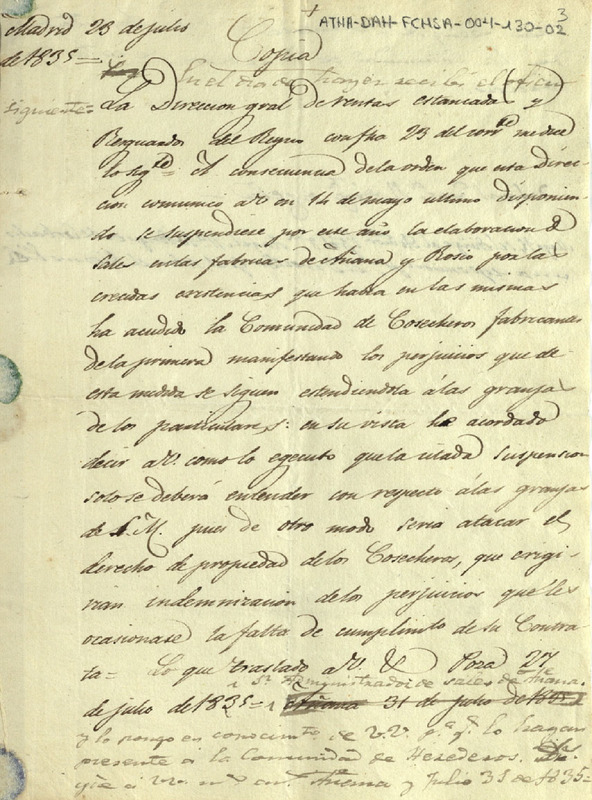 3
ATHA-DAH-FCHSA-004-130-02
Madrid 23 de julio
de 1835 =
Copia
En el dia de hayer recibi el oficio
siguiente =
La Direccion gral de rentas estancadas y
Resguardos del Reyno con fha 23 del corrte me dice
lo sigte = A consecuencia de la orden que esta Direc-
cion comunicó a V. en 14 de mayo ultimo disponien-
do se suspendiese por este año la elaboracion de
Sales en las fabricas de Añana y Rosio por las
crecidas existencias que habia en las mismas
ha acudido la Comunidad de Cosecheros fabricantes
de la primera manifestando los perjuicios que de
esta medida se siguen estendiendola á las granjas
de los particulares: en su vista ha acordado
decir a V. como lo egecuto que la citada suspension
solo se deberá entender con respecto á las granjas
de S. M. pues de otro modo seria atacar el
derecho de propiedad de los Cosecheros, que exigi-
rian indemnizacion de los perjuicios que les
ocasionase la falta de cumplimto de su Contra-
ta = Lo que traslado a V. & Poza 27
Sr Administrador de sales de Añana.
de julio de 1835 = Añana 31 de julio de 1835
y lo pongo en conocimto de V.V. pa qe lo hagan
presente á la Comunidad de Herederos. Dios
gue a VV. ms as Añana y Julio 31 de 1835 =